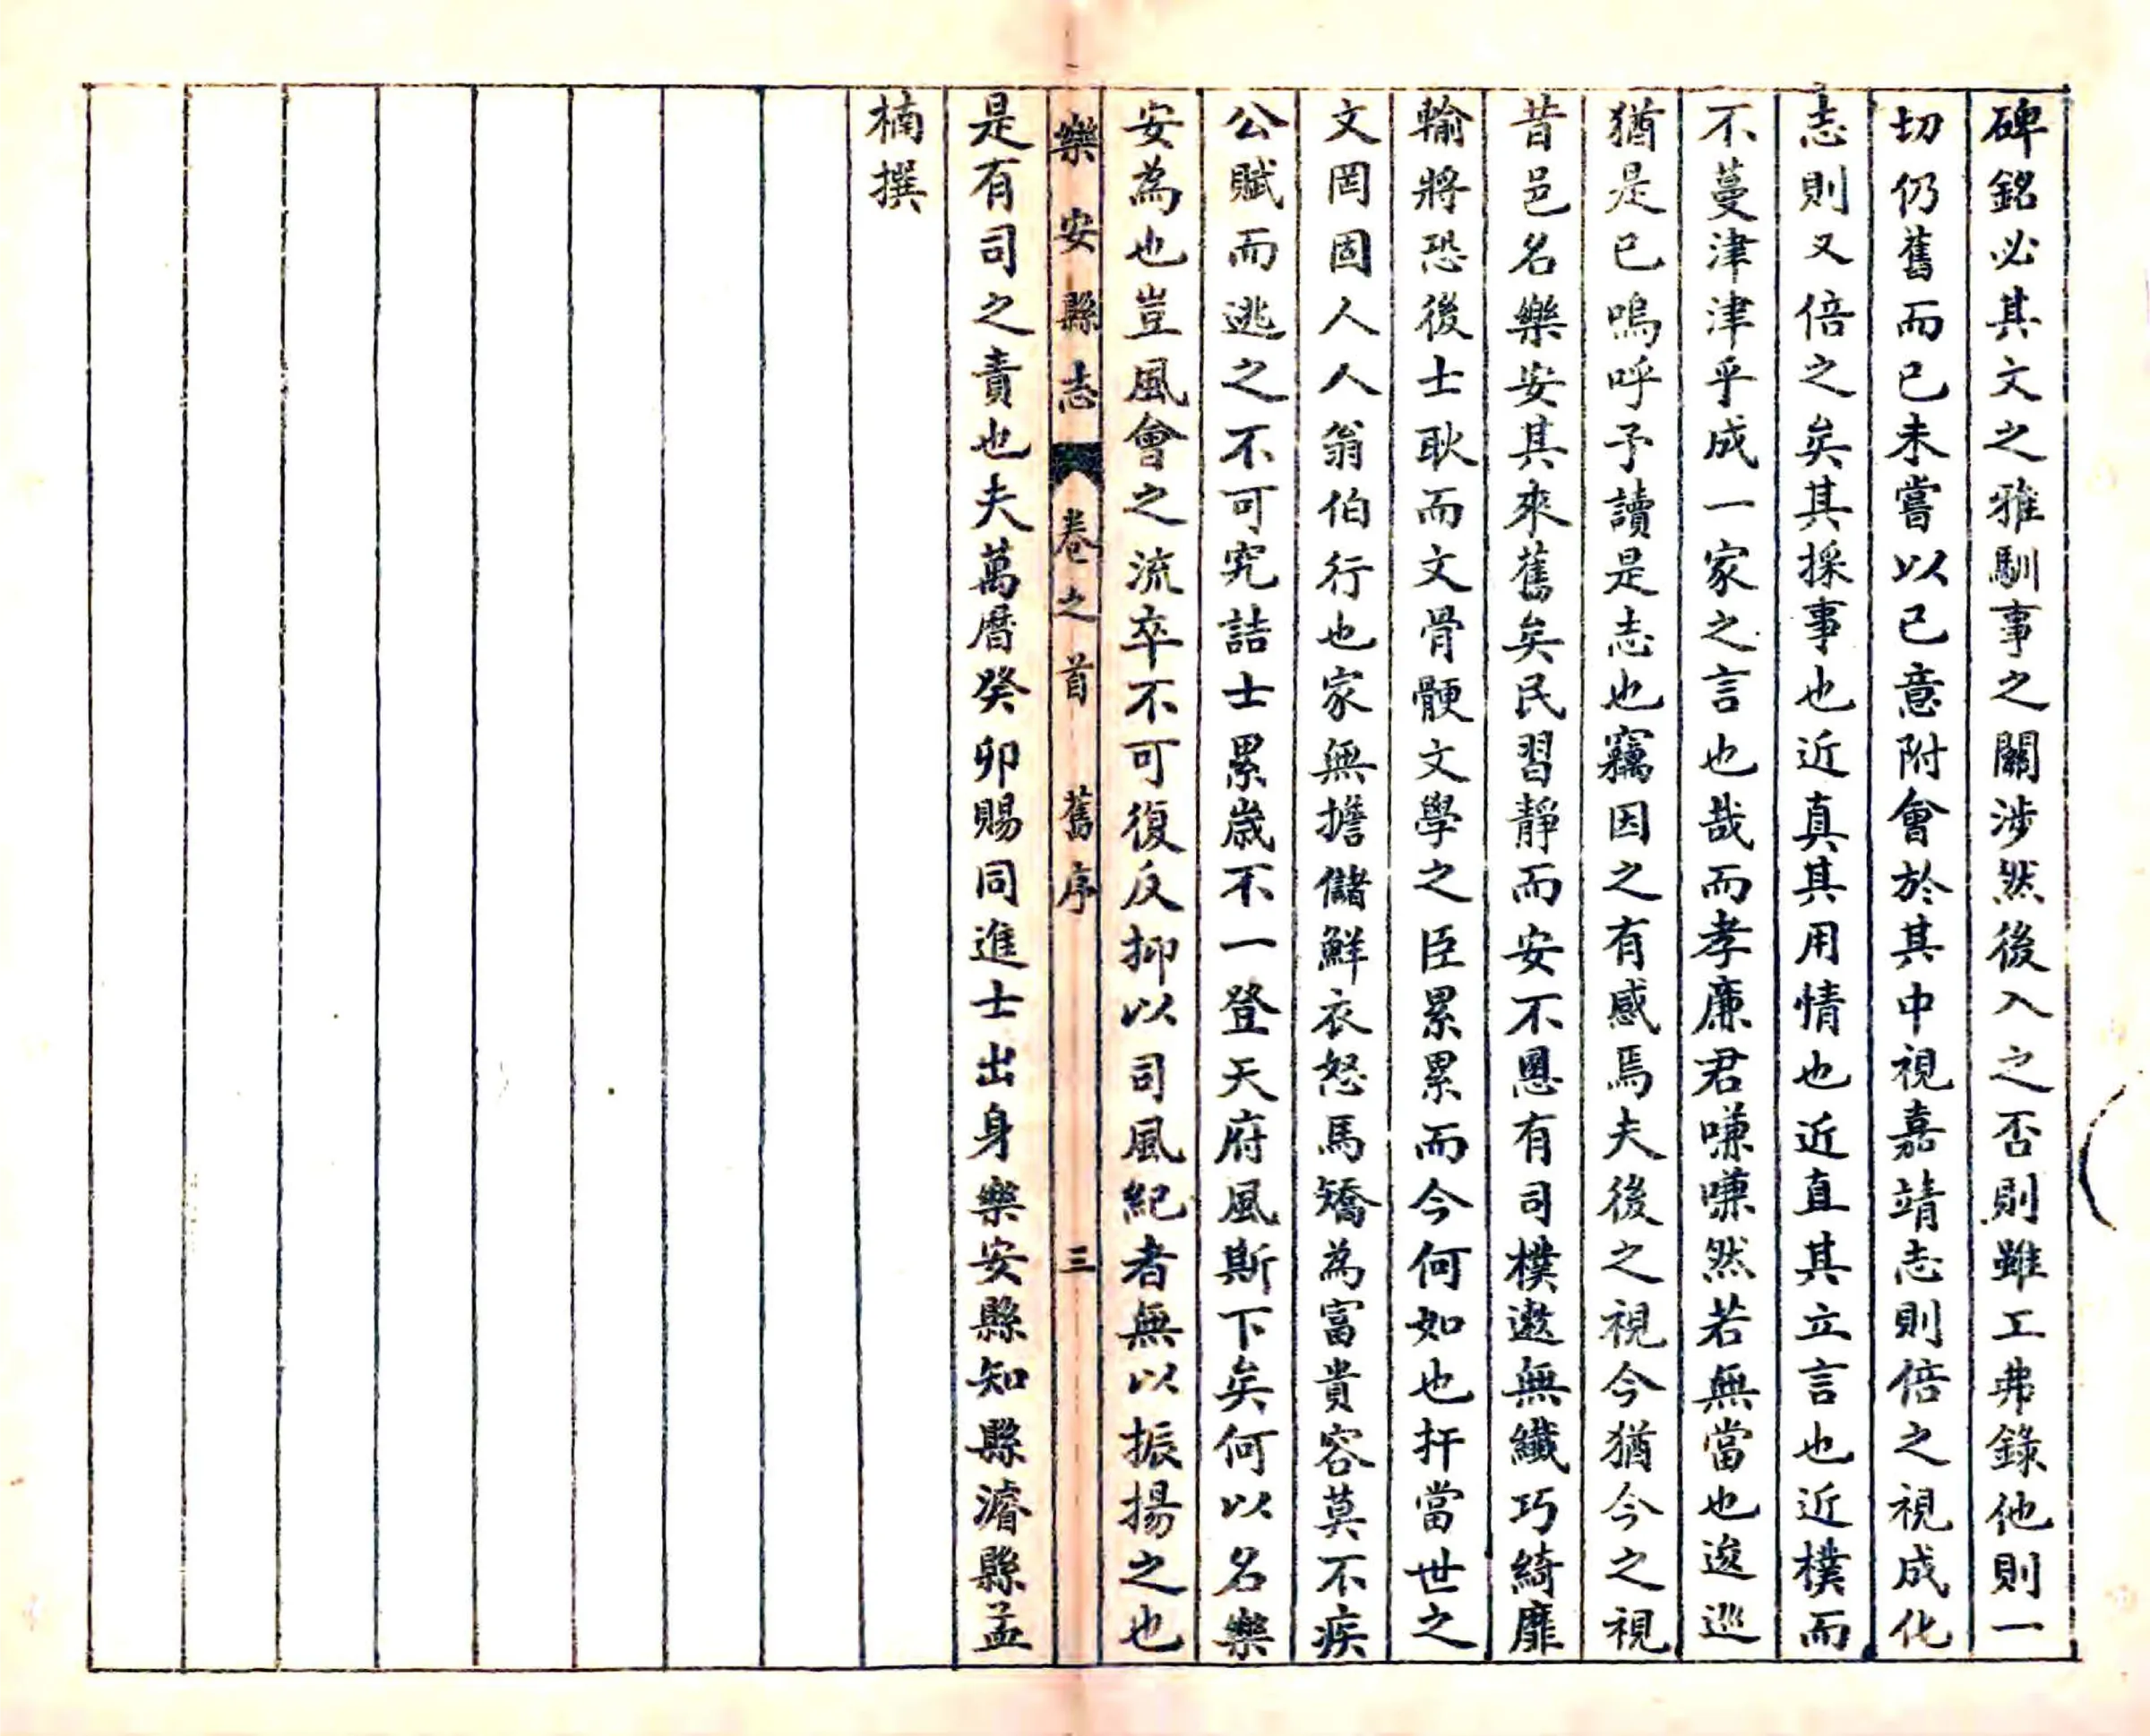 碑銘必其文之雅馴事之關涉然後入之否則雖工弗錄他則一
切仍舊而已未嘗以己意附會於其中視嘉靖志則倍之視成化
志則又倍之矣其採事也近真其用情也近直其立言也近樸而
不蔓津津乎成一家之言也哉而孝廉君嗛嗛然若無當也逡巡
猶是已嗚呼予讀是志也竊因之有感焉夫後之視今猶今之視
昔邑名樂安其來舊矣民習靜而安不慁有司樸遬無纖巧綺靡
輸將恐後士耿而文骨骾文學之臣累累而今何如也扞當世之
文罔固人人翁伯行也家無擔儲鮮衣怒馬矯為富貴容莫不疾
公賦而逃之不可究詰士累歲不一登天府風斯下矣何以名樂
安為也豈風會之流卒不可復反抑以司風紀者無以振揚之也
樂安縣志 卷之首 舊序 三
是有司之責也夫萬曆癸卯賜同進士出身樂安縣知縣濬縣孟
楠撰